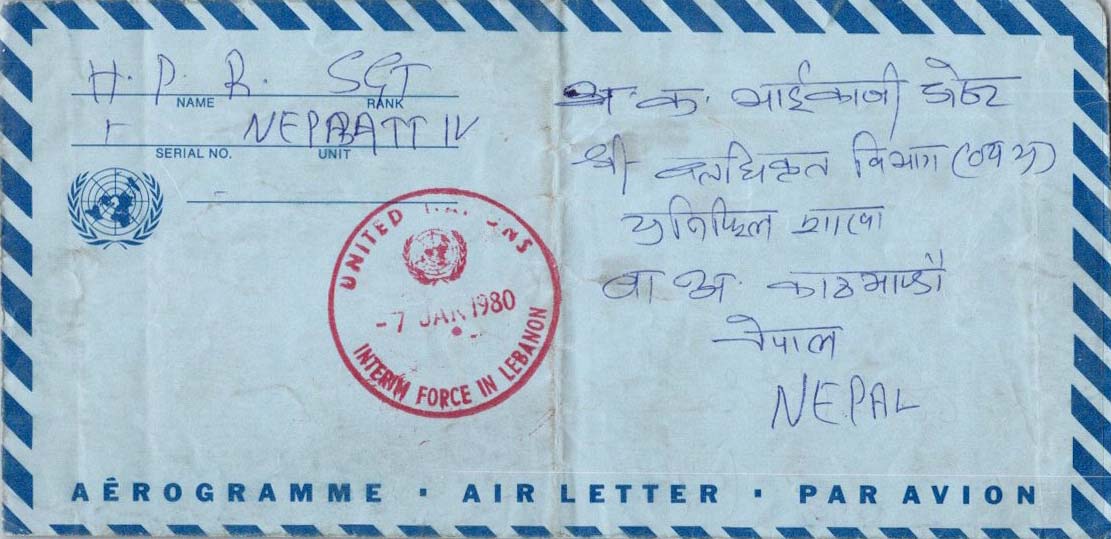 H. P. R. SGT
NAME RANK
NEPBATT IV
SERIAL NO. UNIT
UNITED NATIONS
-7 JAN 1980
INTERIM FORCE IN LEBANON
अ. क. भाईकाजी
श्री बलाधिकृत विभाग
युनिफिल शाखा
बा अ. काठमाण्डौ
नेपाल
NEPAL
AÉROGRAMME · AIR LETTER · PAR AVION